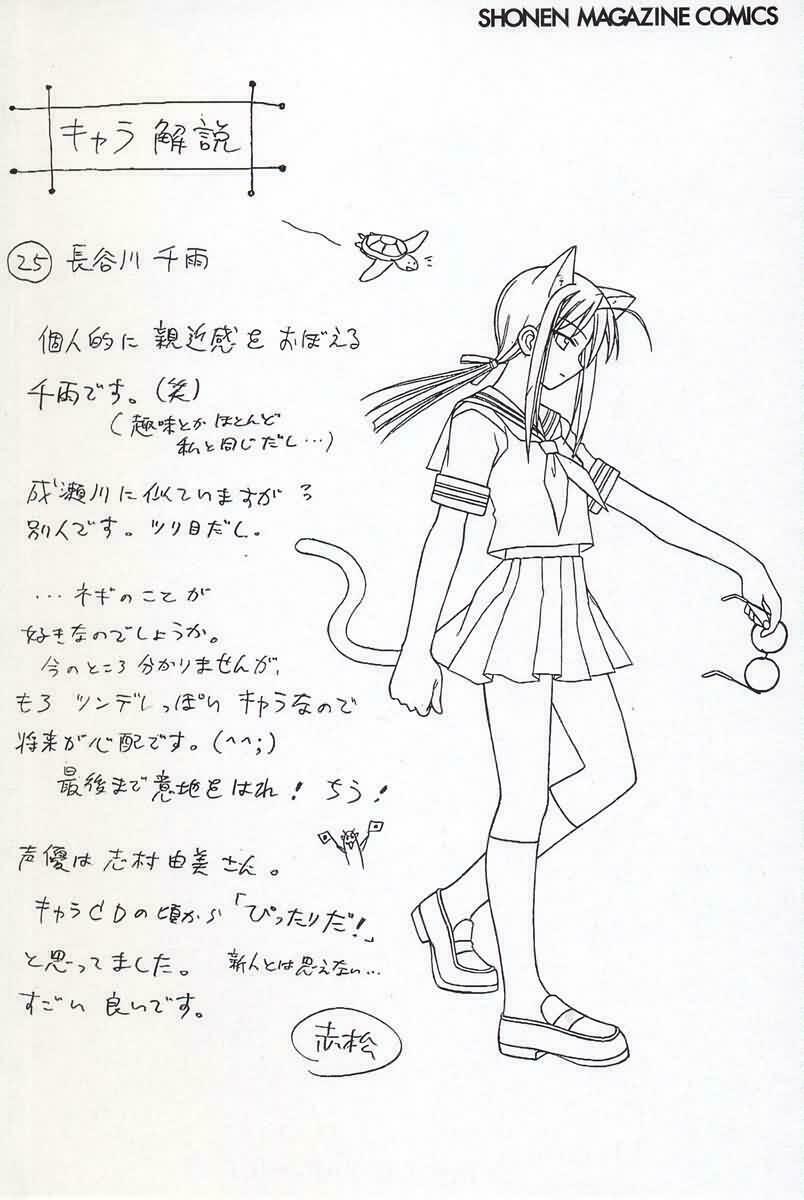 SHONEN MAGAZINE COMICS
キャラ 解説
㉕ 長谷川 千雨
個人的に 親近感を おぼえる
千雨です。(笑)
(趣味とか ほとんど
私と同じだし…)
成瀬川に 似ていますが
別人です。ツリ目だし。
…ネギのことが
好きなのでしょうか。
今のところ 分かりませんが、
もろ ツンデレっぽい キャラなので
将来が心配です。(^^;)
最後まで 意地をはれ! ちう!
声優は 志村由美さん。
キャラCDの頃から「ぴったりだ!」
と思ってました。 新人とは思えない…
すごい 良いです。
赤松